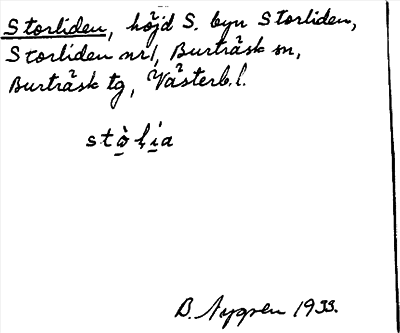 Storliden, höjd S. byn Storliden,
Storliden nr 1, Burträsk sn,
Burträsk tg, Västerb. l.
stò̱l̩i̱a
B. 1933.